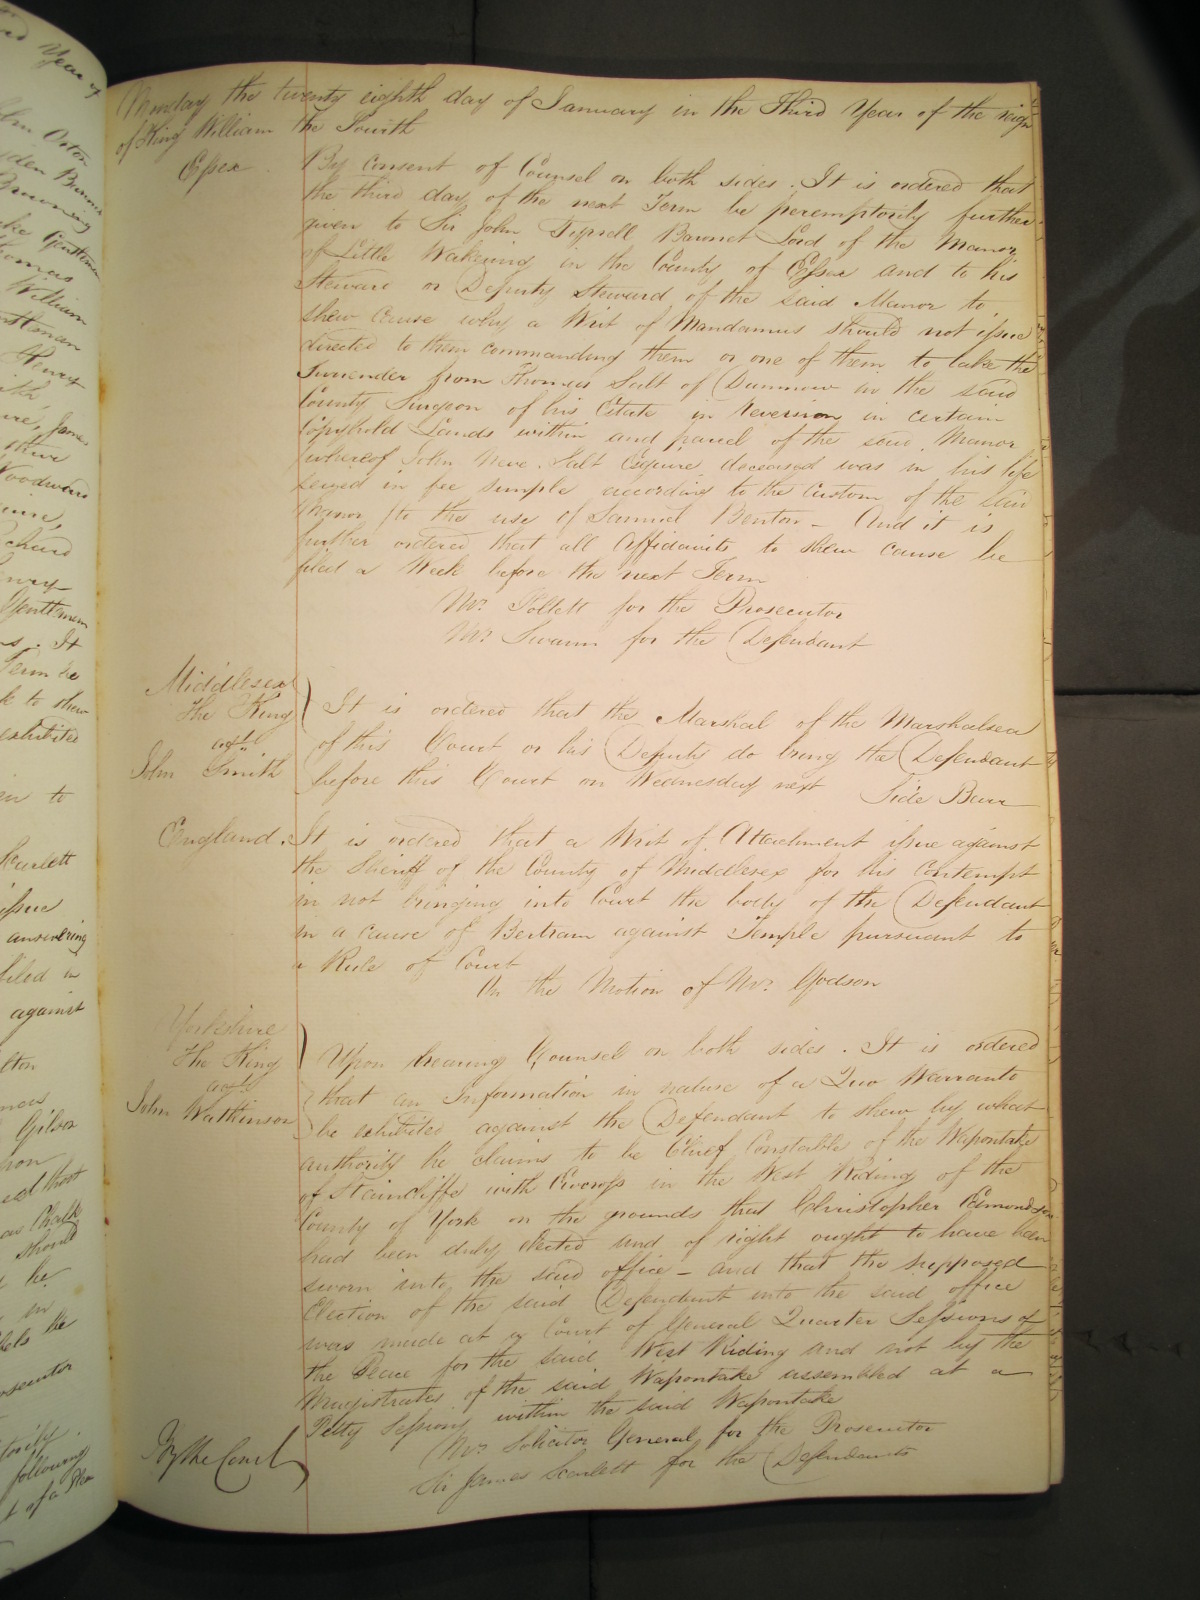 Monday the twenty eighth day of January in the Third Year of the reign
of King William the Fourth
Essex.
By consent of Counsel on both sides. It is ordered that
the third day of the next Term be peremptorily further
given to Sir John Tyrrell Baronet Lord of the Manor
of Little Wakering in the County of Essex and to his
Steward or Deputy Steward of the said Manor to
shew cause why a Writ of Mandamus should not issue
directed to them commanding them or one of them to take the
Surrender from Thomas Salt of Dunmow in the said
County Surgeon of his Estate in Reversion in certain
Copyhold Lands within and parcel of the said Manor
whereof John Neve Salt Esquire deceased was in his life
seized in fee simple according to the Custom of the said
Manor to the use of Samuel Benton – And it is
further ordered that all Affidavits to shew cause be
filed a Week before the next Term
Mr. Follett for the Prosecutor
Mr. Swann for the Defendant
Middlesex
The King
agst
John Smith
It is ordered that the Marshal of the Marshalsea
of this Court or his Deputy do bring the Defendant
before this Court on Wednesday next Side Barr
England.
It is ordered that a Writ of Attachment issue against
the Sheriff of the County of Middlesex for his Contempt
in not bringing into Court the body of the Defendant
in a cause of Bertram against Temple pursuant to
a Rule of Court
On the Motion of Mr. Godson
Yorkshire
The King
agst
John Watkinson
Upon hearing Counsel on both sides. It is ordered
that an Information in nature of a Quo Warranto
be exhibited against the Defendant to shew by what
authority he claims to be Chief Constable of the Wapontake
of Staincliffe with Ewcross in the West Riding of the
County of York on the grounds that Christopher Edmondson
had been duly elected and of right ought to have been
sworn into the said office – and that the supposed
Election of the said Defendant into the said office
was made at a Court of General Quarter Sessions of
the Peace for the said West Riding and not by the
Magistrates of the said Wapontake assembled at a
Petty Sessions within the said Wapontake
Mr. Solicitor General for the Prosecutor
Sir James Scarlett for the Defendants
By the Court